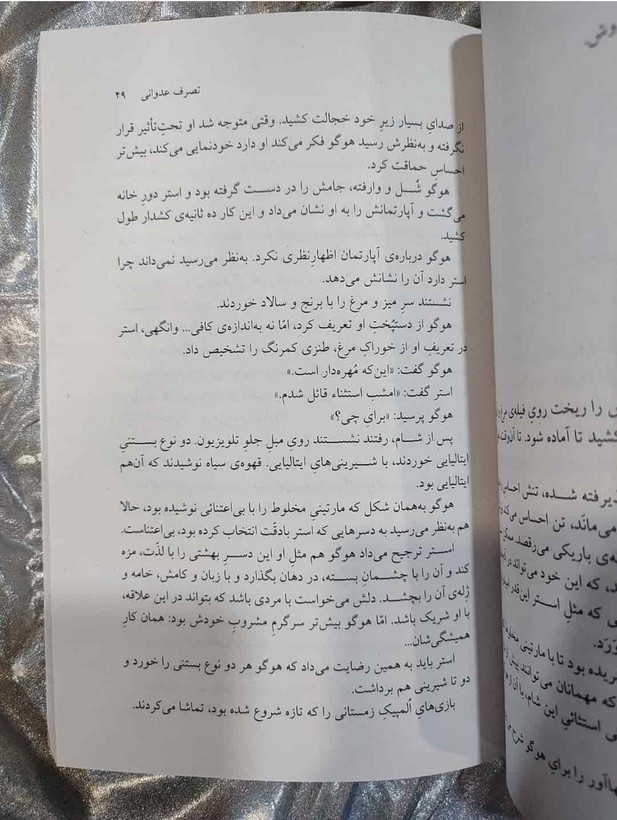 تصرف عدوانی ۴۹
از صدایِ بسیار زیرِ خود خجالت کشید. وقتی متوجه شد او تحتِ‌تأثیر قرار
نگرفته و به‌نظرش رسید هوگو فکر می‌کند او دارد خودنمایی می‌کند، بیش‌تر
احساسِ حماقت کرد.
هوگو شُل و وارفته، جامش را در دست گرفته بود و استر دورِ خانه
می‌گشت و آپارتمانش را به او نشان می‌داد و این کار ده ثانیه‌ی کشدار طول
کشید.
هوگو درباره‌ی آپارتمان اظهارِنظری نکرد. به‌نظر می‌رسید نمی‌داند چرا
استر دارد آن را نشانش می‌دهد.
نشستند سرِ میز و مرغ را با برنج و سالاد خوردند.
هوگو از دستپُختِ او تعریف کرد، امّا نه به‌اندازه‌ی کافی... وانگهی، استر
در تعریفِ او از خوراکِ مرغ، طنزی کمرنگ را تشخیص داد.
هوگو گفت: «این‌که مُهره‌دار است.»
استر گفت: «امشب استثناء قائل شدم.»
هوگو پرسید: «برایِ چی؟»
پس از شام، رفتند نشستند رویِ مبلِ جلوِ تلویزیون. دو نوع بستنیِ
ایتالیایی خوردند، با شیرینی‌هایِ ایتالیایی. قهوه‌ی سیاه نوشیدند که آن‌هم
ایتالیایی بود.
هوگو به‌همان شکل که مارتینیِ مخلوط را با بی‌اعتنائی نوشیده بود، حالا
هم به‌نظر می‌رسید به دسرهایی که استر بادقّت انتخاب کرده بود، بی‌اعتناست.
استر ترجیح می‌داد هوگو هم مثلِ او این دسرِ بهشتی را با لذّت، مزه
کند و آن را با چشمانِ بسته، در دهان بگذارد و با زبان و کامش، خامه و
ژله‌ی آن را بچشد. دلش می‌خواست با مردی باشد که بتواند در این علاقه،
با او شریک باشد. امّا هوگو بیش‌تر سرگرمِ مشروبِ خودش بود: همان کارِ
همیشگی‌شان...
استر باید به همین رضایت می‌داد که هوگو هر دو نوع بستنی را خورد و
دو تا شیرینی هم برداشت.
بازی‌هایِ اُلمپیکِ زمستانی را که تازه شروع شده بود، تماشا می‌کردند.
را ریخت رویِ فیله‌ی
کشید تا آماده شود. تا آن‌وقت
پذیرفته شده، تنش احساسِ
می‌ماند، تن احساس می‌کند
باریکی می‌رقصد.
که این خود می‌تواند در
که مثلِ استر این‌قدر
بود تا با مارتینیِ
که مهمانان می‌توانند پیش از
استثنائیِ این شام، با آن
را برایِ هوگو شرح